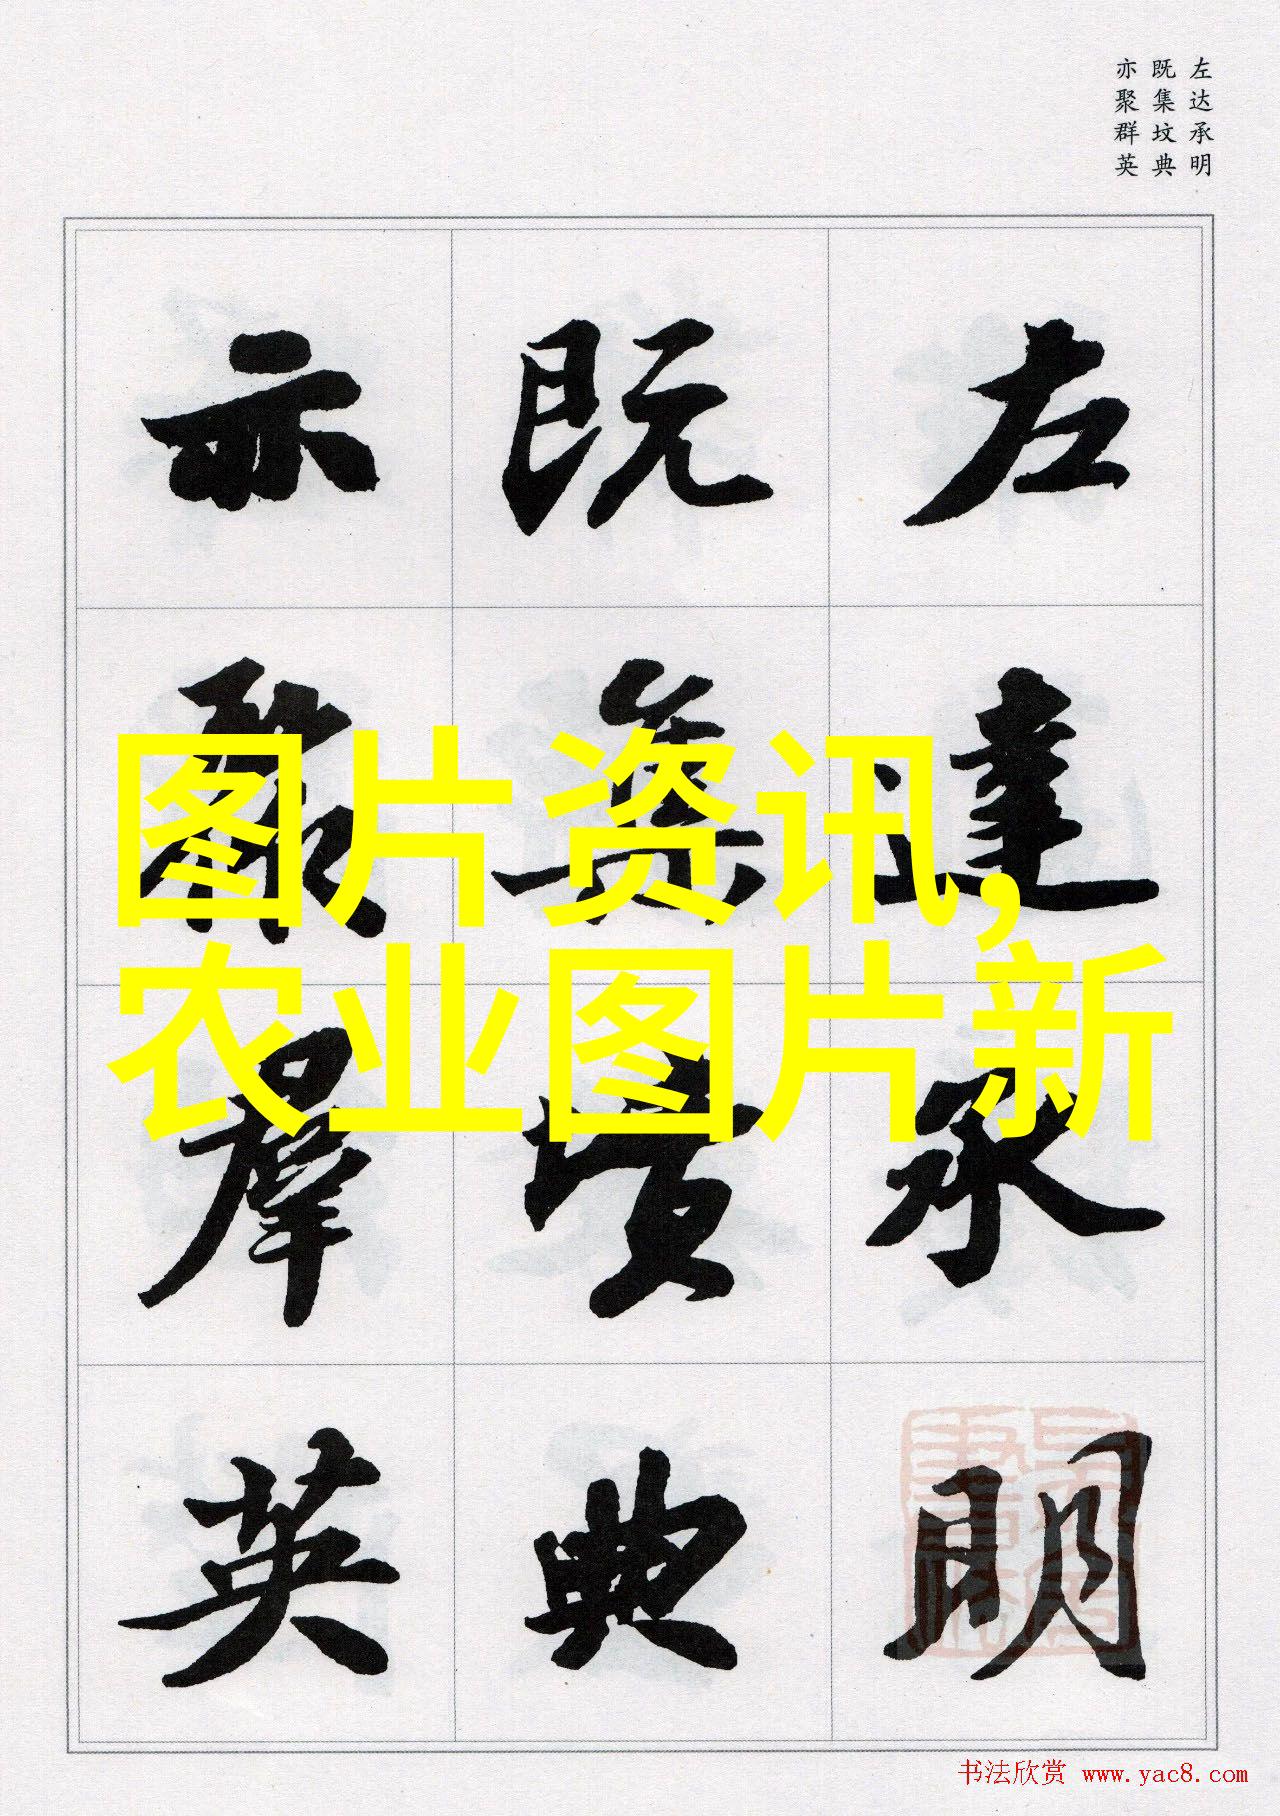 左达承明
既集坟典
亦聚群英
左達承明
既集墳典
亦聚羣英
图片资讯,
农业图片新
书法欣赏 www.yac8.com